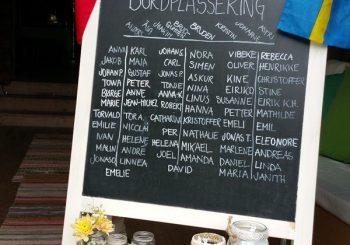 BORDPLASSERING
BRUDEN
ANNA KARL JOHAN S. NORA VIBEKE REBECCA
JAKOB MAIA CARL SIMEN OLIVER HENRIKKE
JOHAN P. GUSTAF JONAS F. ASKUR KINE CHRISTOFFER
TOWA PETER TONJE NINA EIRIKO STINE
BØRGE ANNE ANNA-K LINUS SUSANNE EIRIK K.H.
MARIE JEAN-MICHEL ROBERT HANNA PETTER MATHILDE
TORVALD TORA CATHARINA KRISTOFFER EMELI EMIL
EMILIE NICOLAI PER NATHALIE JONAS T. ELEONORE
IVAN HELENE HELENA MIKAEL MARLENE ANDREAS
MALIN ANDRÉ JOEL AMANDA DANIEL LINDA
JONAS O LINNEA DAVID MARIA JANITH
EMELIE